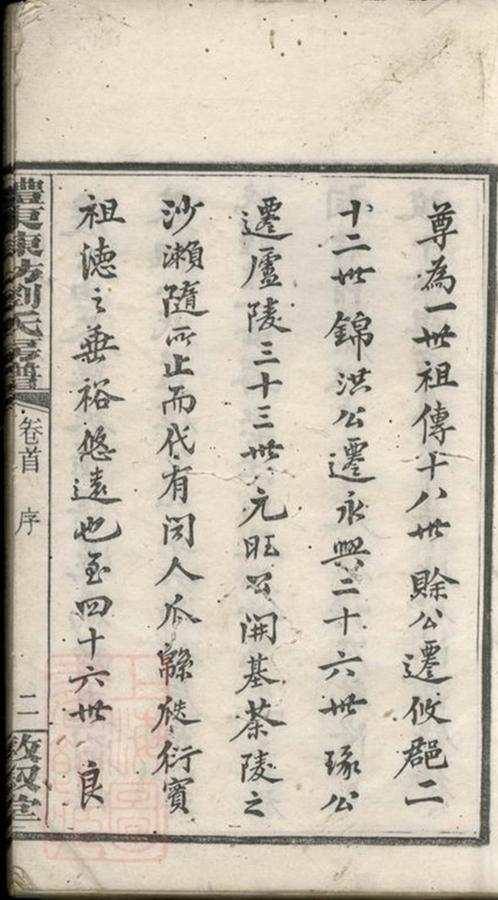 尊為一世祖傳十八世賒公遷攸邑二
十二世錦洪公遷永興二十六世琢公
遷廬陵三十三世元旺公開基茶陵之
沙瀨隨所止而代有聞人瓜緜瓞衍實
祖德之垂裕悠遠也至四十六世良
劉氏房譜
卷首
序
二
敦叙堂